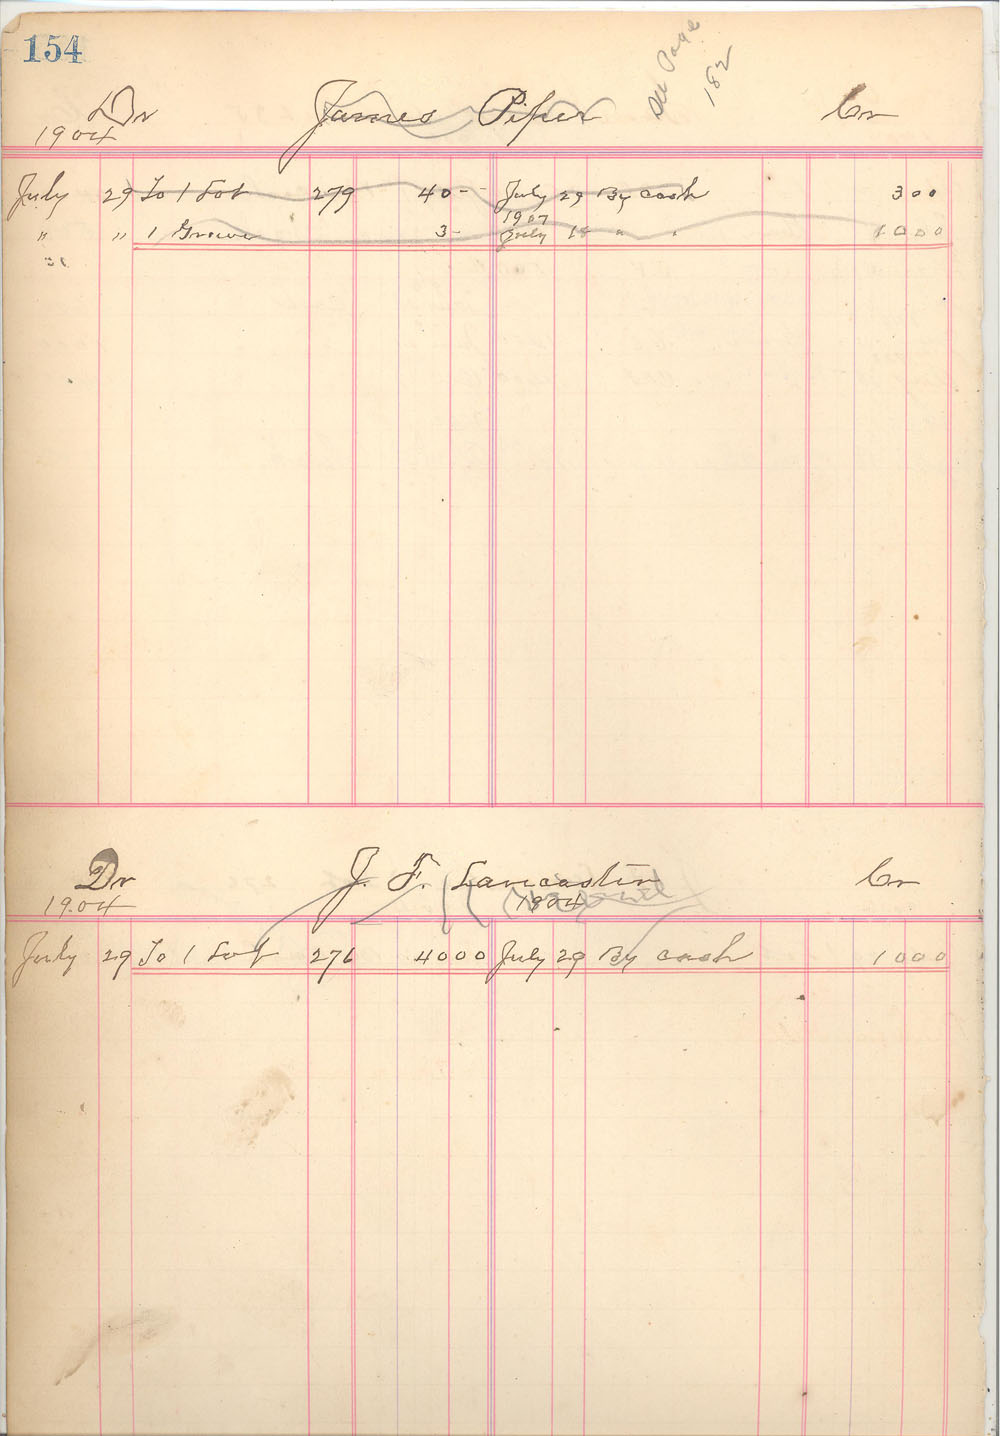 154
See Page
182
Dr James Piper Cr
1904
July 29 To 1 Lot 279 40 - July 29 By cash 3 00
1907
" " 1 Grave 3 - July 18 " " 10 00
Dr J. F. Lancaster Cr
1904 1904
July 29 To 1 Lot 276 40 00 July 29 By cash 10 00